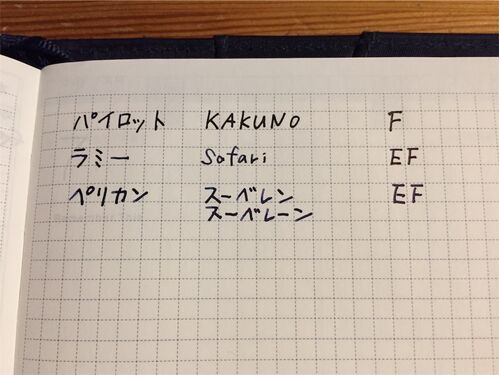 パイロット KAKUNO F
ラミー Safari EF
ペリカン スーベレン EF
スーベレーン